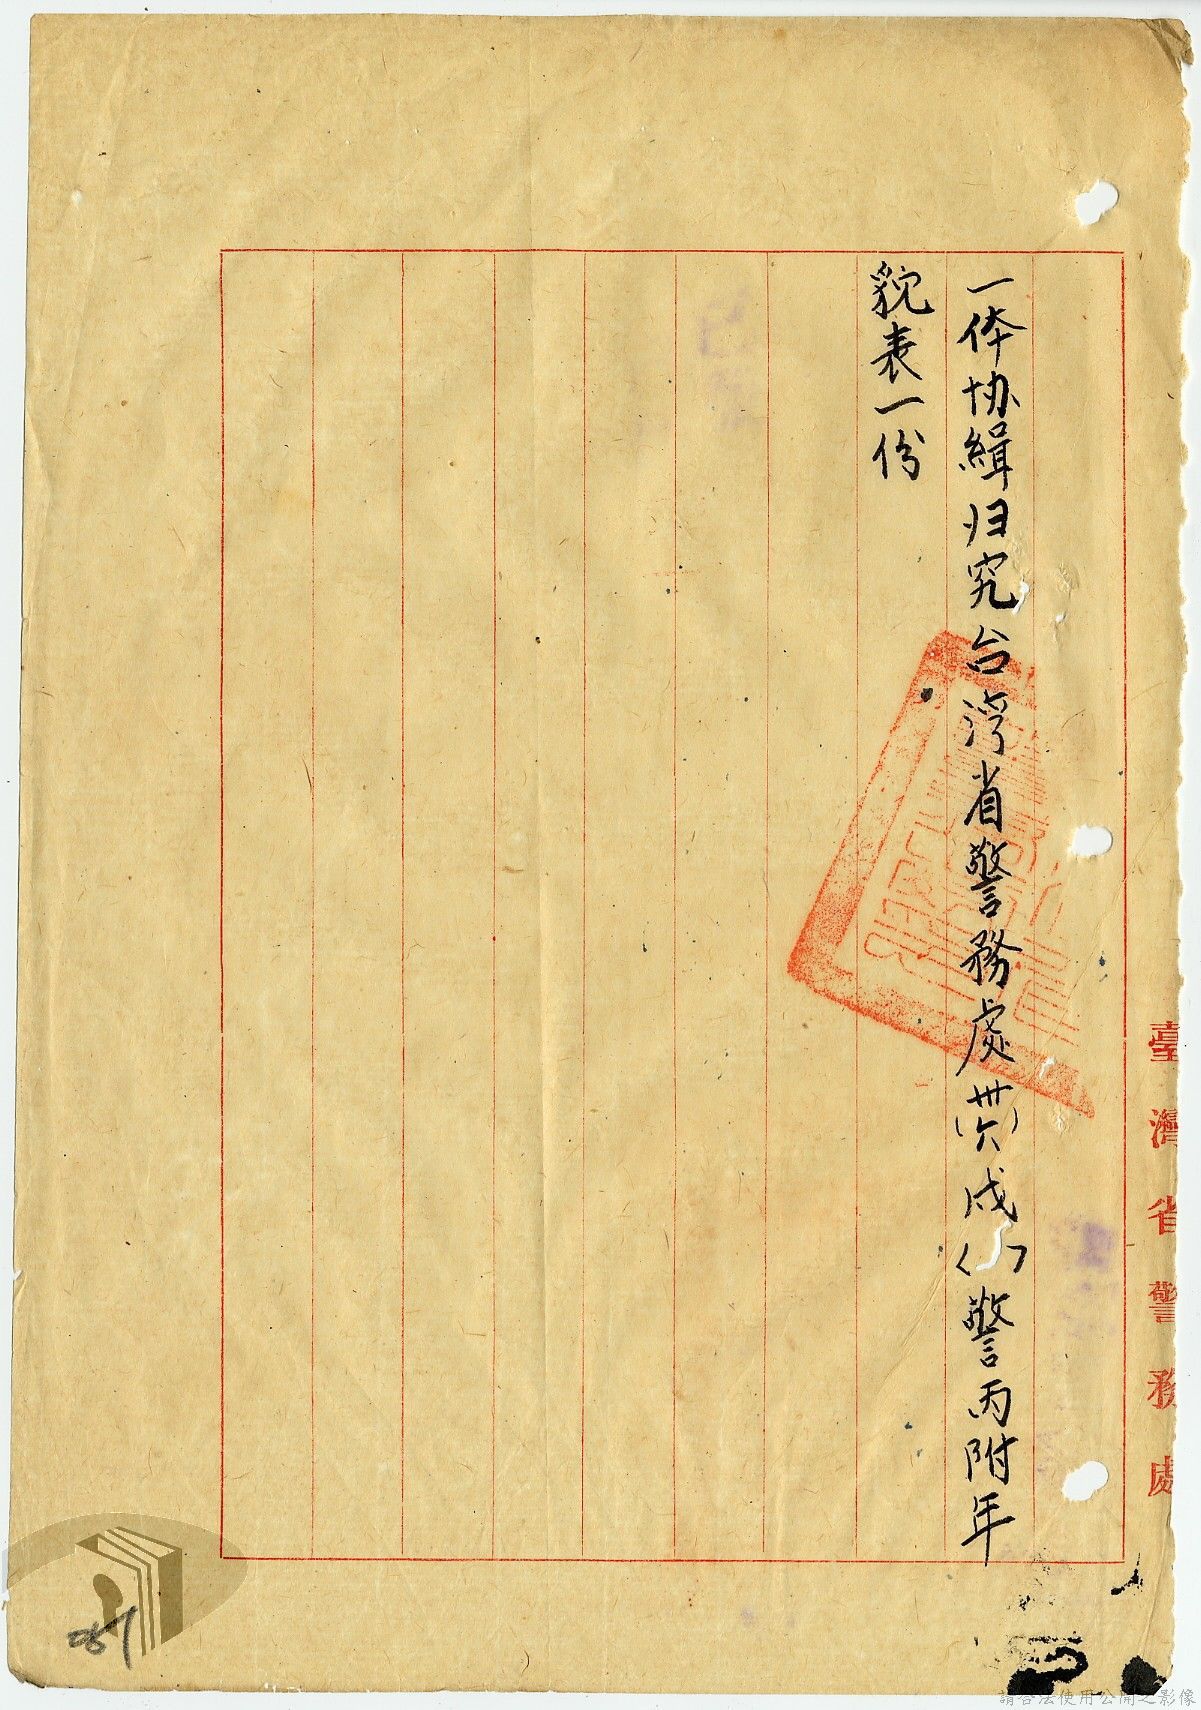 一体协緝归究台湾省警務處(卅六)戍()警丙附年
貌表一份
臺灣省警務處
請合法使用公開之影像